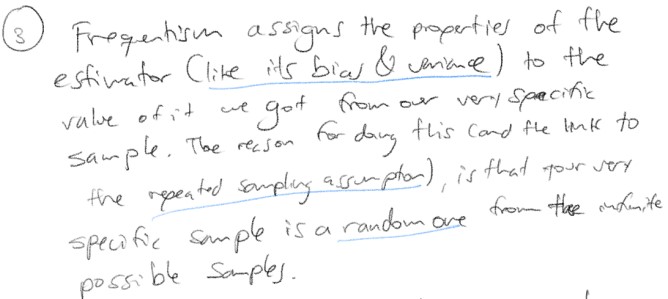 3 Frequentism assigns the properties of the
estimator (like its bias & variance) to the
value of it we got from our very specific
sample. The reason for doing this (and the link to
the repeated sampling assumption), is that your very
specific sample is a random one from the infinite
possible samples.